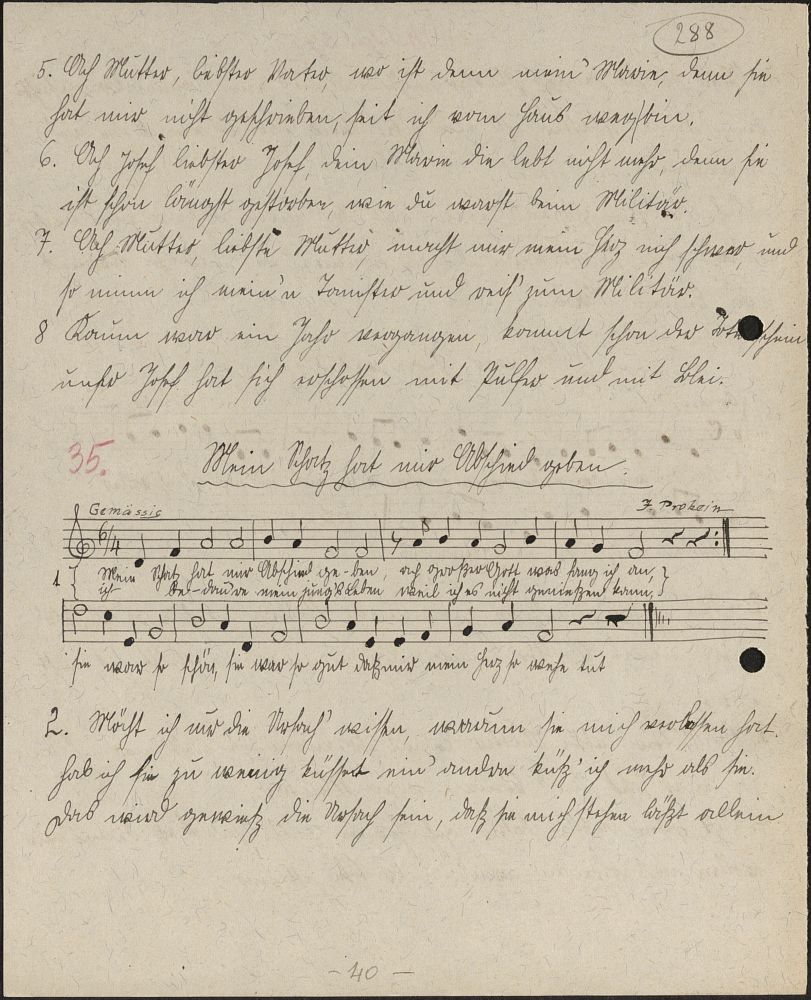 288
5. Ach Mutter, liebster Vater, wo ist denn mein' Marie, denn sie
hat mir nicht geschrieben, seit ich vom Haus weg bin.
6. Ach Josef liebster Josef, dein Marie die lebt nicht mehr, denn sie
ist schon längst gestorben, wie du warst beim Militär.
7. Ach Mutter, liebste Mutter, macht mir mein Herz nich schwer, und
so nimm ich mein'n Tornister und reis' zum Militär.
8 Kaum war ein Jahr vergangen, kommt schon der Totenschein
unser Josef hat sich erschossen mit Pulfer und mit Blei.
35. Mein Schatz hat mir Abschied geben.
Gemässig J. Prokein
6/4
1 { Mein Schatz hat mir Abschied ge-ben, ach großer Gott was fang ich an, }
ich be-daure mein jung's Leben weil ich es nicht genießen kann, }
sie war so schön, sie war so gut daß mir mein Herz so wehe tut
2. Möcht ich nur die Ursach' wissen, warum sie mich verlassen hat.
Hab ich sie zu wenig küsset ein' andre küß' ich mehr als sie.
Das wird gewieß die Ursach sein, daß sie mich stehen läßt allein
- 40 -